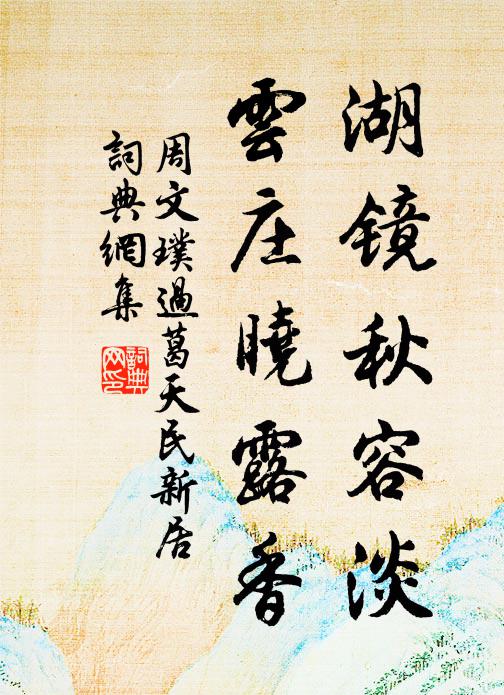 湖镜秋容淡
雲庄曉露香
周文璞過葛天民新居
詞典網集
詞典網印